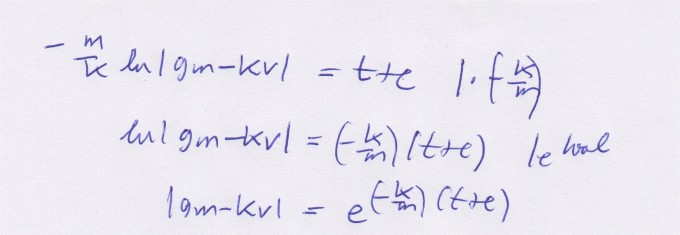 - m/k ln|gm-kv| = t+c |·(-k/m)
ln|gm-kv| = (-k/m)(t+c) |e hoch
|gm-kv| = e^(-k/m)(t+c)